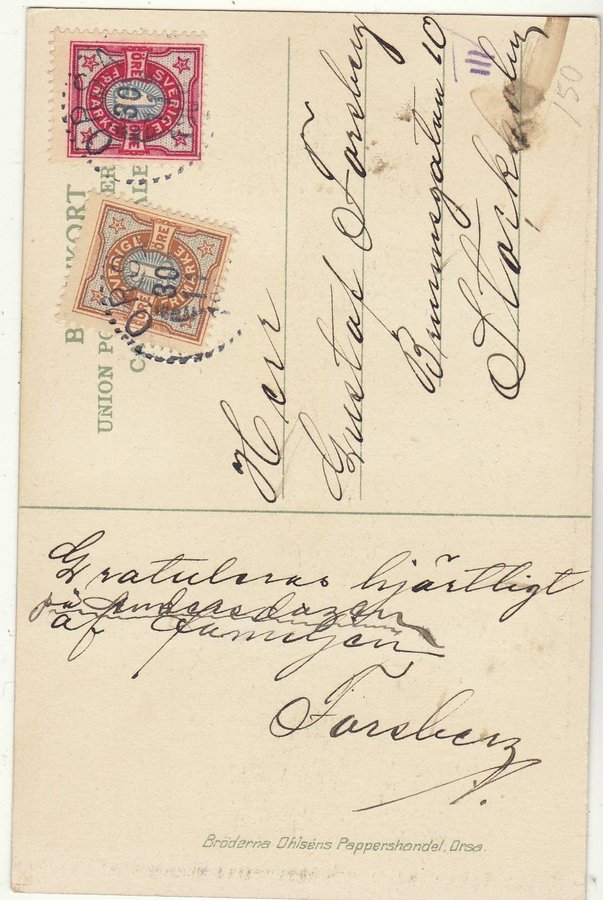 BREFKORT
UNION POSTALE
SVERIGE
FRIMÄRKE
1
ÖRE
SVERIGE
FRIMÄRKE
1
ÖRE
30
30
III
150
Herr
Gustaf Forsberg
Brunnsgatan 10
Stockholm
Gratuleras hjärtligt
på
af familjen
Forsberg
Bröderna Ohlséns Pappershandel, Orsa.